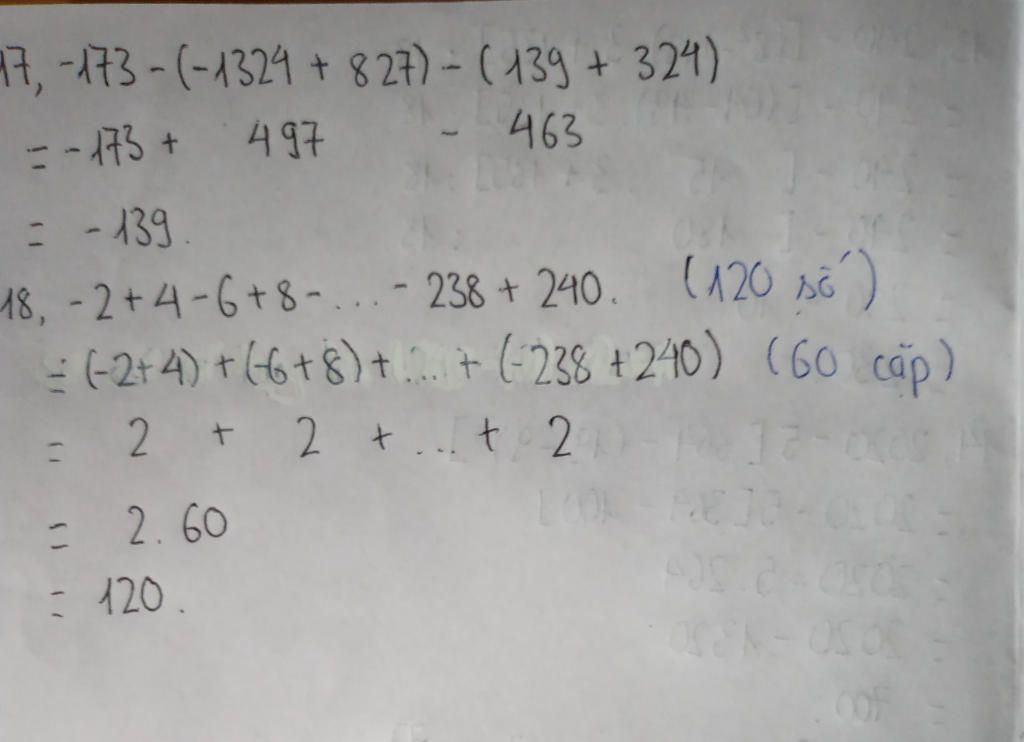 17, -173 - (-1324 + 827) - (139 + 324)
= -173 + 497 - 463
= -139.
18, -2 + 4 - 6 + 8 - ... - 238 + 240. (120 số)
= (-2 + 4) + (-6 + 8) + ... + (-238 + 240) (60 cặp)
= 2 + 2 + ... + 2
= 2. 60
= 120.